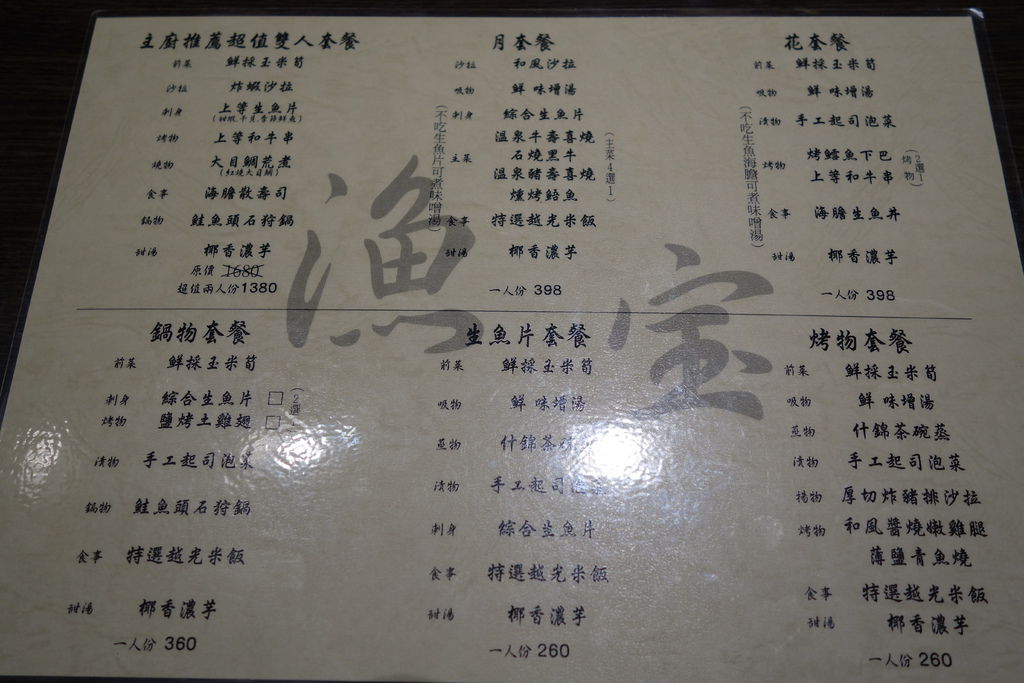 主廚推薦超值雙人套餐
前菜 鮮採玉米筍
沙拉 炸蝦沙拉
刺身 上等生魚片
(甜蝦.干貝.季節鮮魚)
烤物 上等和牛串
燒物 大目鯛荒煮
(紅燒大目鯛)
食事 海膽散壽司
鍋物 鮭魚頭石狩鍋
甜湯 椰香濃芋
原價 1680
超值兩人份1380
月套餐
沙拉 和風沙拉
吸物 鮮味增湯
刺身 綜合生魚片
(不吃生魚片可煮味噌湯)
主菜 溫泉牛壽喜燒
石燒黑牛
溫泉豬壽喜燒
燻烤鮭魚
(主菜4選1)
食事 特選越光米飯
甜湯 椰香濃芋
一人份 398
花套餐
前菜 鮮採玉米筍
吸物 鮮味增湯
漬物 手工起司泡菜
(不吃生魚海膽可煮味噌湯)
烤物 烤鱈魚下巴
上等和牛串
(烤物2選1)
食事 海膽生魚丼
甜湯 椰香濃芋
一人份 398
漁宝
鍋物套餐
前菜 鮮採玉米筍
刺身 綜合生魚片 □
烤物 鹽烤土雞翅 □
(2選
漬物 手工起司泡菜
鍋物 鮭魚頭石狩鍋
食事 特選越光米飯
甜湯 椰香濃芋
一人份 360
生魚片套餐
前菜 鮮採玉米筍
吸物 鮮味增湯
蒸物 什錦茶
漬物 手工起司泡菜
刺身 綜合生魚片
食事 特選越光米飯
甜湯 椰香濃芋
一人份 260
烤物套餐
前菜 鮮採玉米筍
吸物 鮮味增湯
蒸物 什錦茶碗蒸
漬物 手工起司泡菜
揚物 厚切炸豬排沙拉
烤物 和風醬燒嫩雞腿
薄鹽青魚燒
食事 特選越光米飯
甜湯 椰香濃芋
一人份 260